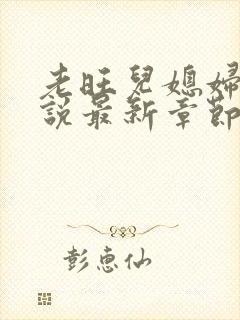 老旺兒媳婦
說最新章節
彭惠仙